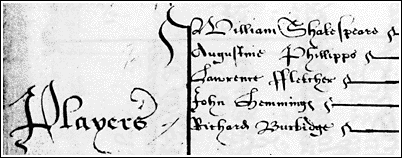 William Shakespeare
Augustine Phillipps
Lawrence ffletcher
John Hemminges
Richard Burbidge
Players